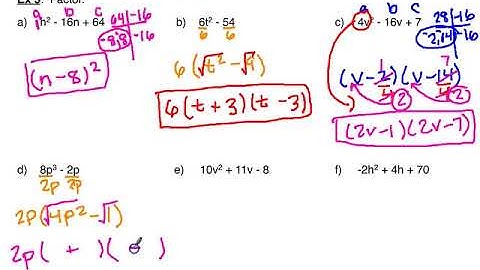 Ex 3: Factor.
a) n² - 16n + 64
a b c
64 | -16
-8,-8 | -16
(n-8)²
b) 6t² - 54
6 6
6(√t² - √9)
6(t+3)(t-3)
c) 4v² - 16v + 7
a b c
28 | -16
-2,-14 | -16
(v - 2/4)(v - 14/4)
1 7
2 2
(2v-1)(2v-7)
d) 8p³ - 2p
2p 2p
2p(√4p² - √1)
2p( + )( - )
e) 10v² + 11v - 8
f) -2h² + 4h + 70